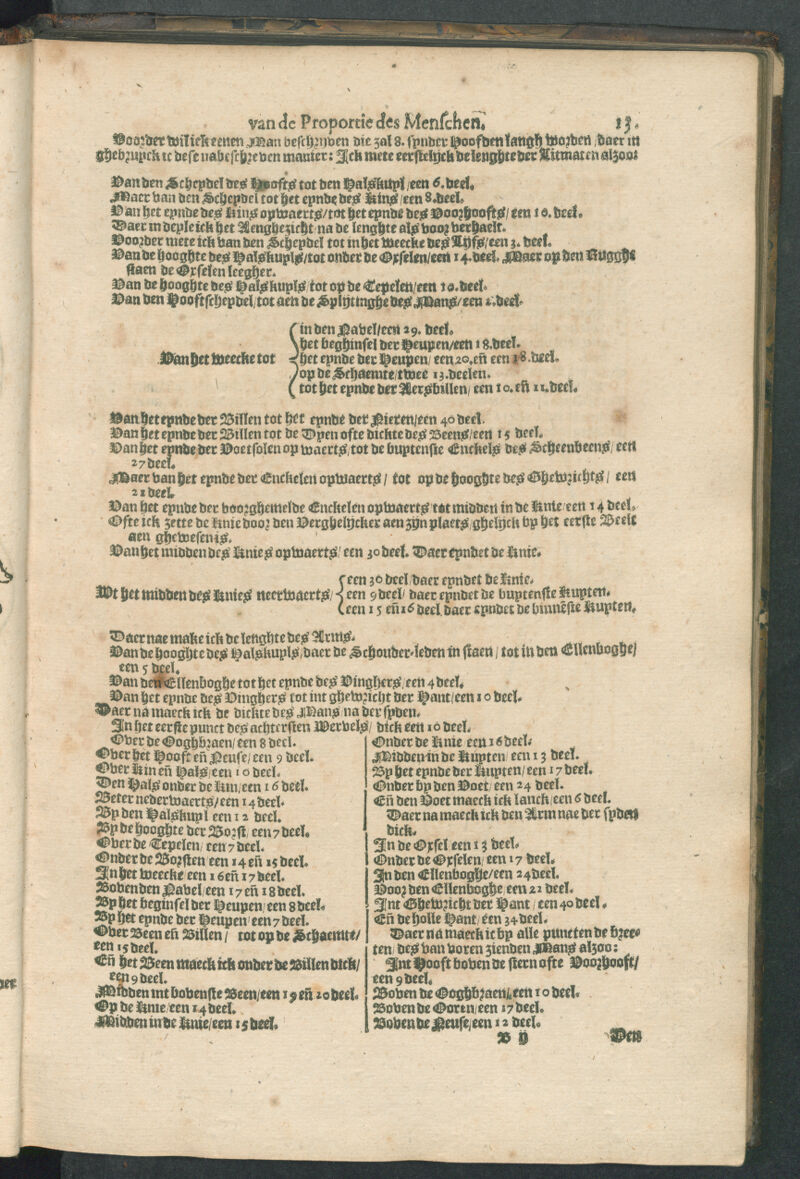 van de Proportie des Menschen. 13.
Voorder wil ick eenen Man beschrijven die zal 8. synder Hoofden langh worden/ daer in
ghebruyck ic dese nabeschreven manier: Ick mete eerstelijck de lenghte der Litmaten alzoo:
Van den Scheydel des Hoofts tot den Halskuyl/ een 6. deel.
Maer van den Scheydel tot het eynde des Kins/ een 8. deel.
Van het eynde des Kins opwaerts/ tot het eynde des Voorhoofts/ een 10. deel.
Daer in deyle ick het Aenghezicht/ na de lenghte als voor verhaelt.
Voorder mete ick van den Scheydel tot in het weecke des Lyfs/ een 3. deel.
Van de hooghte des Halskuyls/ tot onder de Oxselen/ een 14. deel. Maer op den Rugghe
staen de Oxselen leegher.
Van de hooghte des Halskuyls/ tot op de Tepelen/ een 10. deel.
Van den Hooftscheydel/ tot aen de Splijtinghe des Mans/ een 2. deel.
in den Navel/ een 29. deel.
het beghinsel der Heupen/ een 18. deel.
Van het weecke tot het eynde der Heupen/ een 20. en̄ een 18. deel.
op de Schaemte/ twee 13. deelen.
tot het eynde der Aersbillen/ een 10. en̄ 11. deel.
Van het eynde der Billen tot het eynde der Nieren/ een 40 deel.
Van het eynde der Billen tot de Dyen ofte dichte des Beens/ een 15 deel.
Van het eynde der Voetsolen opwaerts/ tot de buytenste Enckels des Scheenbeens/ een
27 deel.
Maer van het eynde der Enckelen opwaerts/ tot op de hooghte des Ghewrichts/ een
21 deel.
Van het eynde der voorghemelde Enckelen opwaerts/ tot midden in de Knie/ een 14 deel.
Ofte ick zette de Knie door den Verghelijcker aen zijn plaets/ ghelijck by het eerste Beelt
aen ghewesen is.
Van het midden des Knies opwaerts/ een 30 deel. Daer eyndet de Knie.
een 30 deel/ daer eyndet de Knie.
Wt het midden des Knies neerwaerts/ een 9 deel/ daer eyndet de buytenste Kuyten.
een 15 en̄ 16 deel/ daer eyndet de binnēste Kuyten.
Daer nae make ick de lenghte des Arms.
Van de hooghte des Halskuyls/ daer de Schouder-leden in staen/ tot in den Ellenboghe/
een 5 deel.
Van den Ellenboghe tot het eynde des Vinghers/ een 4 deel.
Van het eynde des Vinghers tot int ghewricht der Hant/ een 10 deel.
Daer na maeck ick de dickte des Mans na der syden.
In het eerste punct des achtersten Wervels/ dick een 10 deel.
Over de Ooghbraen/ een 8 deel.
Over het Hooft en̄ Neuse/ een 9 deel.
Over Kin en̄ Hals/ een 10 deel.
Den Hals onder de Kin/ een 16 deel.
Beter nederwaerts/ een 14 deel.
By den Halskuyl een 12 deel.
By de hooghte der Borst/ een 7 deel.
Over de Tepelen/ een 7 deel.
Onder de Borsten een 14 en̄ 15 deel.
In het weecke een 16 en̄ 17 deel.
Boven den Navel/ een 17 en̄ 18 deel.
By het beginsel der Heupen/ een 8 deel.
By het eynde der Heupen/ een 7 deel.
Over Been en̄ Billen/ tot op de Schaemte/
een 15 deel.
En̄ het Been maeck ick onder de Billen dick/
een 9 deel.
Midden int bovenste Been/ een 19 en̄ 20 deel.
Op de Knie/ een 14 deel.
Midden in de Knie/ een 15 deel.
Onder de Knie een 16 deel.
Midden in de Kuyten/ een 13 deel.
By het eynde der Kuyten/ een 17 deel.
Onder by den Voet/ een 24 deel.
En̄ den Voet maeck ick lanck/ een 6 deel.
Daer na maeck ick den Arm nae der syden
dick.
In de Oxsel een 13 deel.
Onder de Oxselen/ een 17 deel.
In den Ellenboghe/ een 24 deel.
Voor den Ellenboghe/ een 22 deel.
Int Ghewricht der Hant/ een 40 deel.
En̄ de holle Hant/ een 34 deel.
Daer na maeck ic by alle puncten de bree-
ten/ des van voren zienden Mans alzoo:
Int Hooft boven de stern ofte Voorhooft/
een 9 deel.
Boven de Ooghbraen/ een 10 deel.
Boven de Ooren/ een 17 deel.
Boven de Neuse/ een 12 deel.
B ij Den